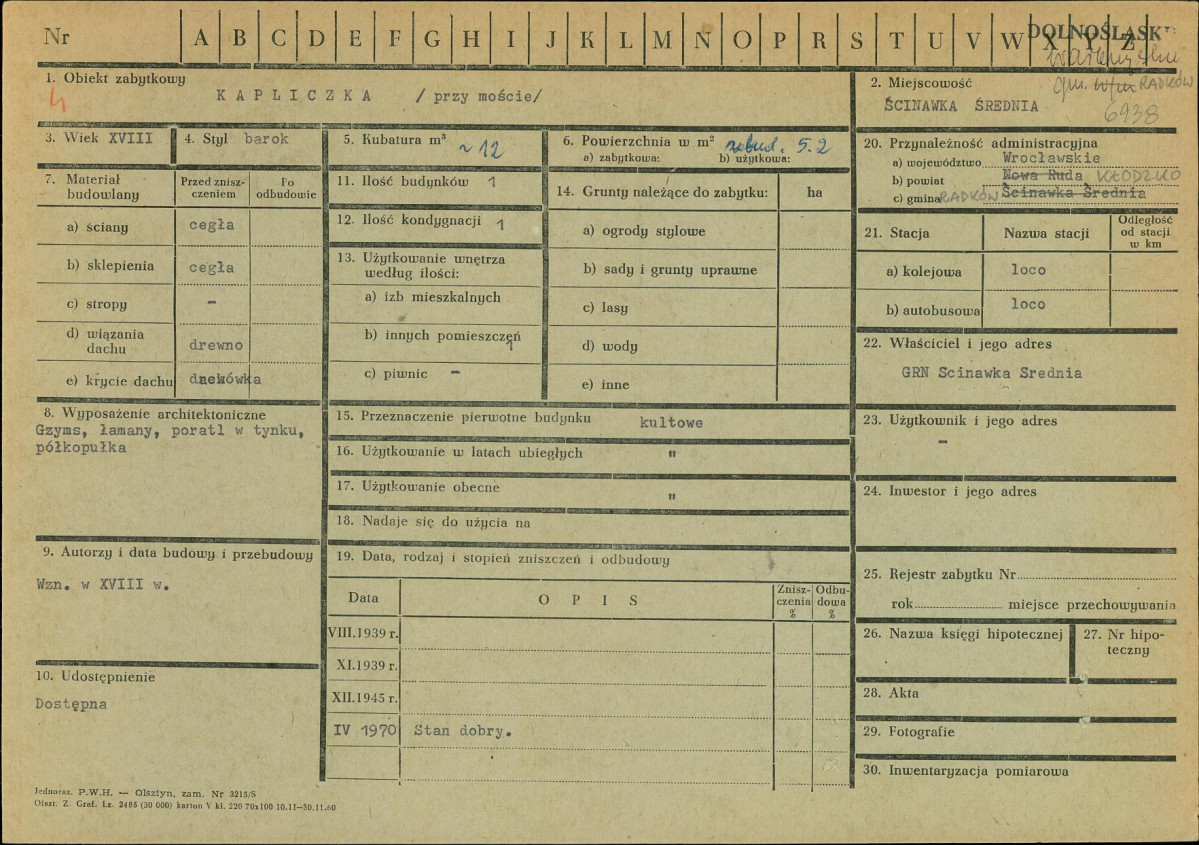 Nr A B C D E F G H I J K L M N O P R S T U V W X Y Z
DOLNOŚLĄSK
1. Obiekt zabytkowy
KAPLICZKA / przy moście/
2. Miejscowość
gm. RADKÓW
ŚCINAWKA ŚREDNIA
6938
3. Wiek XVIII
4. Styl barok
5. Kubatura m³ ~ 12
6. Powierzchnia w m² zabud. 5.2
a) zabytkowa: b) użytkowa:
7. Materiał budowlany
Przed znisz-
czeniem
Po
odbudowie
a) ściany cegła
b) sklepienia cegła
c) stropy -
d) wiązania
dachu drewno
e) krycie dachu dachówka
8. Wyposażenie architektoniczne
Gzyms, łamany, poratl w tynku,
półkopułka
9. Autorzy i data budowy i przebudowy
Wzn. w XVIII w.
10. Udostępnienie
Dostępna
11. Ilość budynków 1
12. Ilość kondygnacji 1
13. Użytkowanie wnętrza
według ilości:
a) izb mieszkalnych
b) innych pomieszczeń 1
c) piwnic -
14. Grunty należące do zabytku: ha
a) ogrody stylowe
b) sady i grunty uprawne
c) lasy
d) wody
e) inne
15. Przeznaczenie pierwotne budynku kultowe
16. Użytkowanie w latach ubiegłych "
17. Użytkowanie obecne "
18. Nadaje się do użycia na
19. Data, rodzaj i stopień zniszczeń i odbudowy
Data OPIS
Znisz-
czenia
%
Odbu-
dowa
%
VIII.1939 r.
XI.1939 r.
XII.1945 r.
IV 1970 Stan dobry.
20. Przynależność administracyjna
a) województwo Wrocławskie
b) powiat Nowa Ruda KŁODZKO
c) gmina RADKÓW Ścinawka Średnia
21. Stacja
Nazwa stacji
Odległość
od stacji
w km
a) kolejowa loco
b) autobusowa loco
22. Właściciel i jego adres
GRN Scinawka Srednia
23. Użytkownik i jego adres
-
24. Inwestor i jego adres
25. Rejestr zabytku Nr
rok miejsce przechowywania
26. Nazwa księgi hipotecznej
27. Nr hipo-
teczny
28. Akta
29. Fotografie
30. Inwentaryzacja pomiarowa
Jednoraz. P.W.H. — Olsztyn, zam. Nr 3215/S
Olszt. Z. Graf. Lz. 2485 (30 000) karton V kl. 220 70x100 10.11—30.11.60